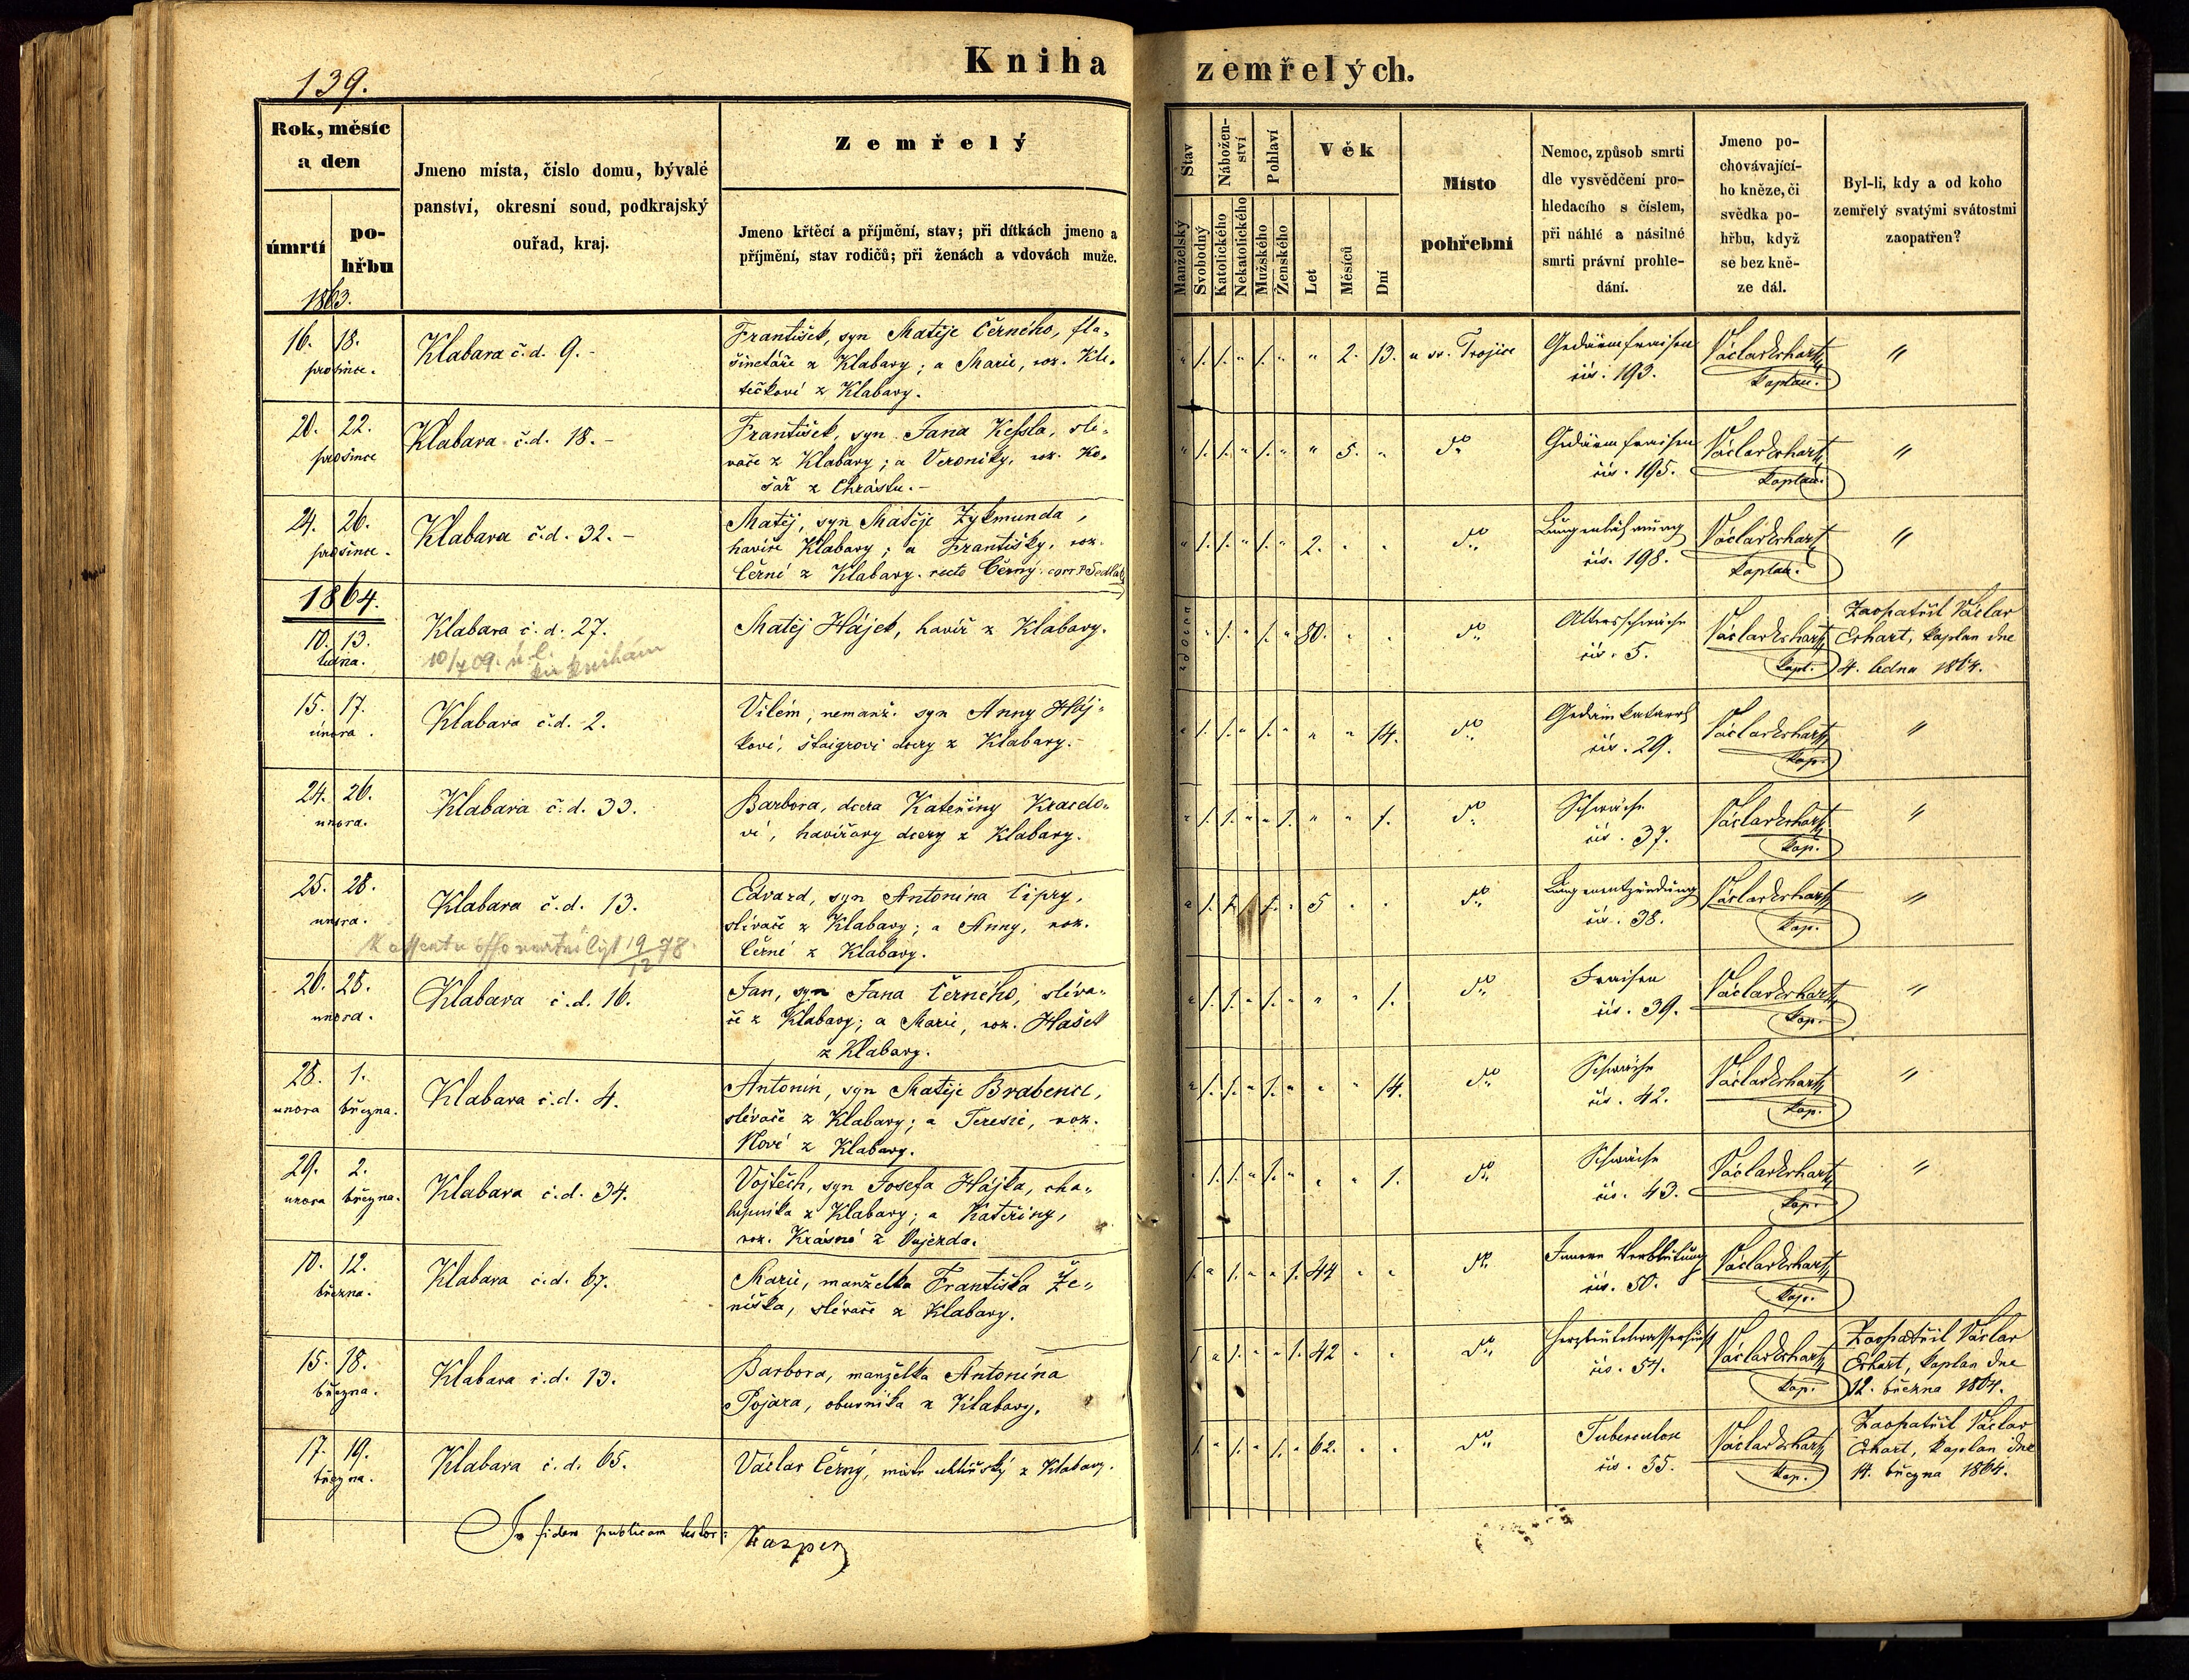 139.
Kniha zemřelých.
Rok, měsíc
a den
úmrtí
po-
hřbu
1863.
Jmeno místa, číslo domu, bývalé
panství, okresní soud, podkrajský
ouřad, kraj.
Zemřelý
Jmeno křtěcí a příjmění, stav; při dítkách jmeno a
příjmění, stav rodičů; při ženách a vdovách muže.
Stav
Manželský
Svobodný
Nábožen-
ství
Katolického
Nekatolického
Pohlaví
Mužského
Ženského
Věk
Let
Měsíců
Dní
Místo
pohřební
Nemoc, způsob smrti
dle vysvědčení pro-
hledacího s číslem,
při náhlé a násilné
smrti právní prohle-
dání.
Jmeno po-
chovávající-
ho kněze, či
svědka po-
hřbu, když
se bez kně-
ze dál.
Byl-li, kdy a od koho
zemřelý svatými svátostmi
zaopatřen?
16. 18.
prosince.
Klabava č.d. 9.-
František, syn Matěje Černého, fla-
šinetáře z Klabavy; a Marie, roz. Kle-
tečkové z Klabavy.
" 1. 1. " 1. " " 2. 13.
u sv. Trojice
Gedärmfraisen
čís. 193.
Václav Erhart,
kaplan.
"
20. 22.
prosince
Klabava č.d. 18.-
František, syn Jana Kessla, slé-
vače z Klabavy; a Veroniky, roz. Ko-
sař z Chrástu.-
" 1. 1. " 1. " " 5. "
do
Gedärmfraisen
čís. 195.
Václav Erhart,
kaplan.
"
24. 26.
prosince.
Klabava č.d. 32.-
Matěj, syn Matěje Zykmunda,
havíře Klabavy; a Františky, roz.
Černé z Klabavy. recte Černý. corr. P. Sedlák
" 1. 1. " 1. " 2. " "
do
Lungenlähmung
čís. 198.
Václav Erhart,
kaplan.
"
1864.
10. 13.
ledna.
Klabava č.d. 27.
10/7 09. ú. l.
Matěj Hájek, havíř z Klabavy.
vdovec
" 1. " 1. " 80. " "
do
Altersschwäche
čís. 5.
Václav Erhart,
kapl.
Zaopatřil Václav
Erhart, kaplan dne
4. ledna 1864.
15. 17.
února.
Klabava č.d. 2.
Vilém, nemanž. syn Anny Háj-
kové, štaigrovi dcery z Klabavy.-
" 1. 1. " 1. " " " 14.
do
Gedärmkatarrh
čís. 29.
Václav Erhart,
kap.
"
24. 26.
unora.
Klabava č.d. 33.
Barbora, dcera Kateřiny Kraedo-
vé, havířovy dcery z Klabavy.
" 1. 1. " " 1. " " 1.
do
Schwäche
čís. 37.
Václav Erhart,
kap.
"
25. 28.
unora.
Klabava č.d. 13.
19/12 78.
Edvard, syn Antonína Cipry,
slévače z Klabavy; a Anny, roz.
Černé z Klabavy.
" 1. 1. " 1. " 5 " "
do
Lungenentzündung
čís. 38.
Václav Erhart,
kap.
"
26. 28.
unora.
Klabava č.d. 16.
Jan, syn Jana Černého, sléva-
če z Klabavy; a Marie, roz. Hašek
z Klabavy.
" 1. 1. " 1. " " " 1.
do
Fraisen
čís. 39.
Václav Erhart,
kap.
"
28. 1.
unora března.
Klabava č.d. 4.
Antonín, syn Matěje Brabence,
slévače z Klabavy; a Teresie, roz.
Nové z Klabavy.
" 1. 1. " 1. " " " 14.
do
Schwäche
čís. 42.
Václav Erhart,
kap.
"
29. 2.
unora března.
Klabava č.d. 34.
Vojtěch, syn Josefa Hájka, cha-
lupníka z Klabavy; a Kateřiny,
roz. Krásné z Oujezda.
" 1. 1. " 1. " " " 1.
do
Schwäche
čís. 43.
Václav Erhart,
kap.
"
10. 12.
března.
Klabava č.d. 67.
Marie, manželka Františka Že-
níška, slévače z Klabavy.
1. " 1. " " 1. 44 " "
do
Innere Verblutung
čís. 50.
Václav Erhart,
kap.
15. 18.
března.
Klabava č.d. 13.
Barbora, manželka Antonína
Pojara, obuvníka z Klabavy.
1 " 1. " " 1. 42 " "
do
Herzbeutelwassersucht
čís. 54.
Václav Erhart,
kap.
Zaopatřil Václav
Erhart, kaplan dne
12. března 1864.
17. 19.
března.
Klabava č.d. 65.
Václav Černý, mistr uhlířský z Klabavy.
1. " 1. " 1. " 62. " "
do
Tuberculose
čís. 55.
Václav Erhart,
kap.
Zaopatřil Václav
Erhart, kaplan dne
14. března 1864.
In fidem publicam testor: Kasper